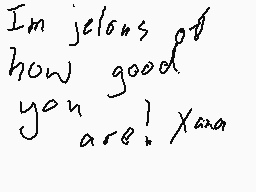 Im jelous of
how good
you
are! Xana